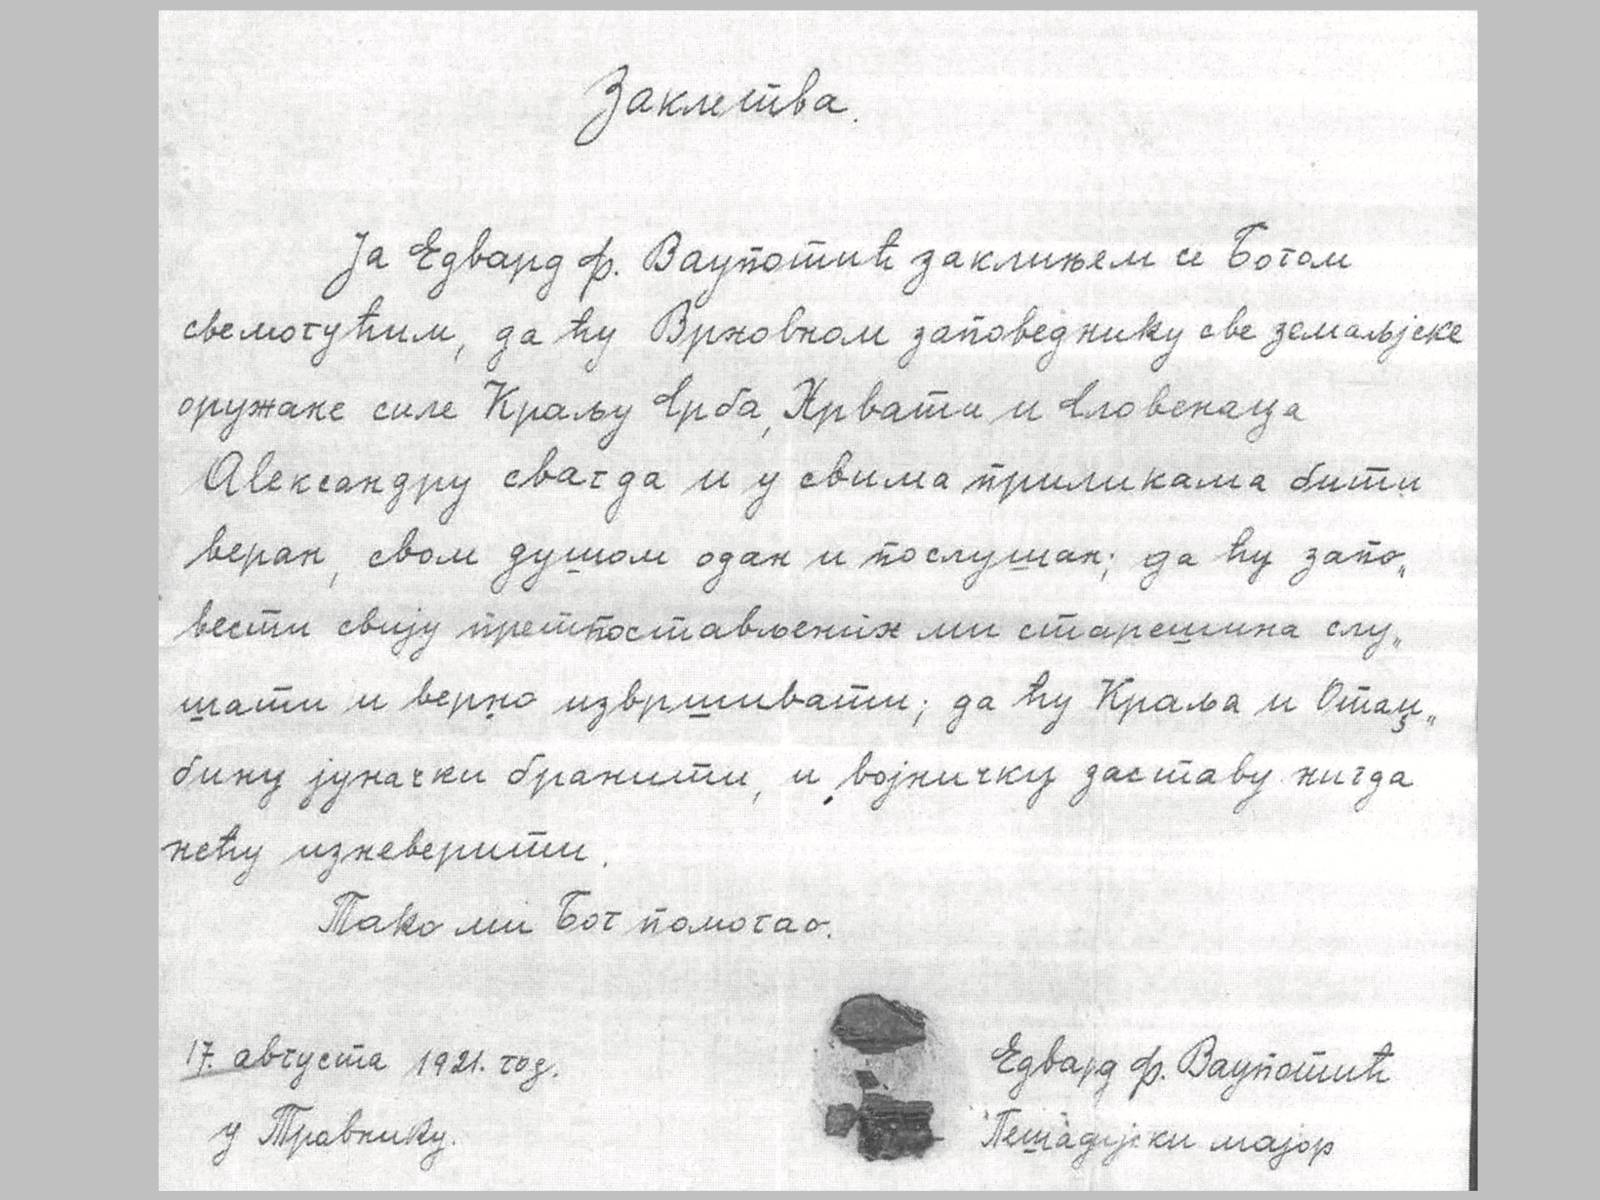 Заклетва.
Ја Едвард ф. Ваупотић заклињем се Богом
свемогућим, да ћу Врховном заповеднику све земаљјске
оружане силе Краљу Срба, Хрвати и Словенаца
Александру свагда и у свима приликама бити
веран, свом душом одан и послушан; да ћу запо„
вести свију претпостављених ми старешина слу„
шати и верно извршивати; да ћу Краља и Отаџ„
бину јуначки бранити, и војничку заставу нигда
нећу изневерити.
Тако ми Бог помогао.
17. августа 1921. год.
у Травнику.
Едвард ф. Ваупотић
Пешадијски мајор